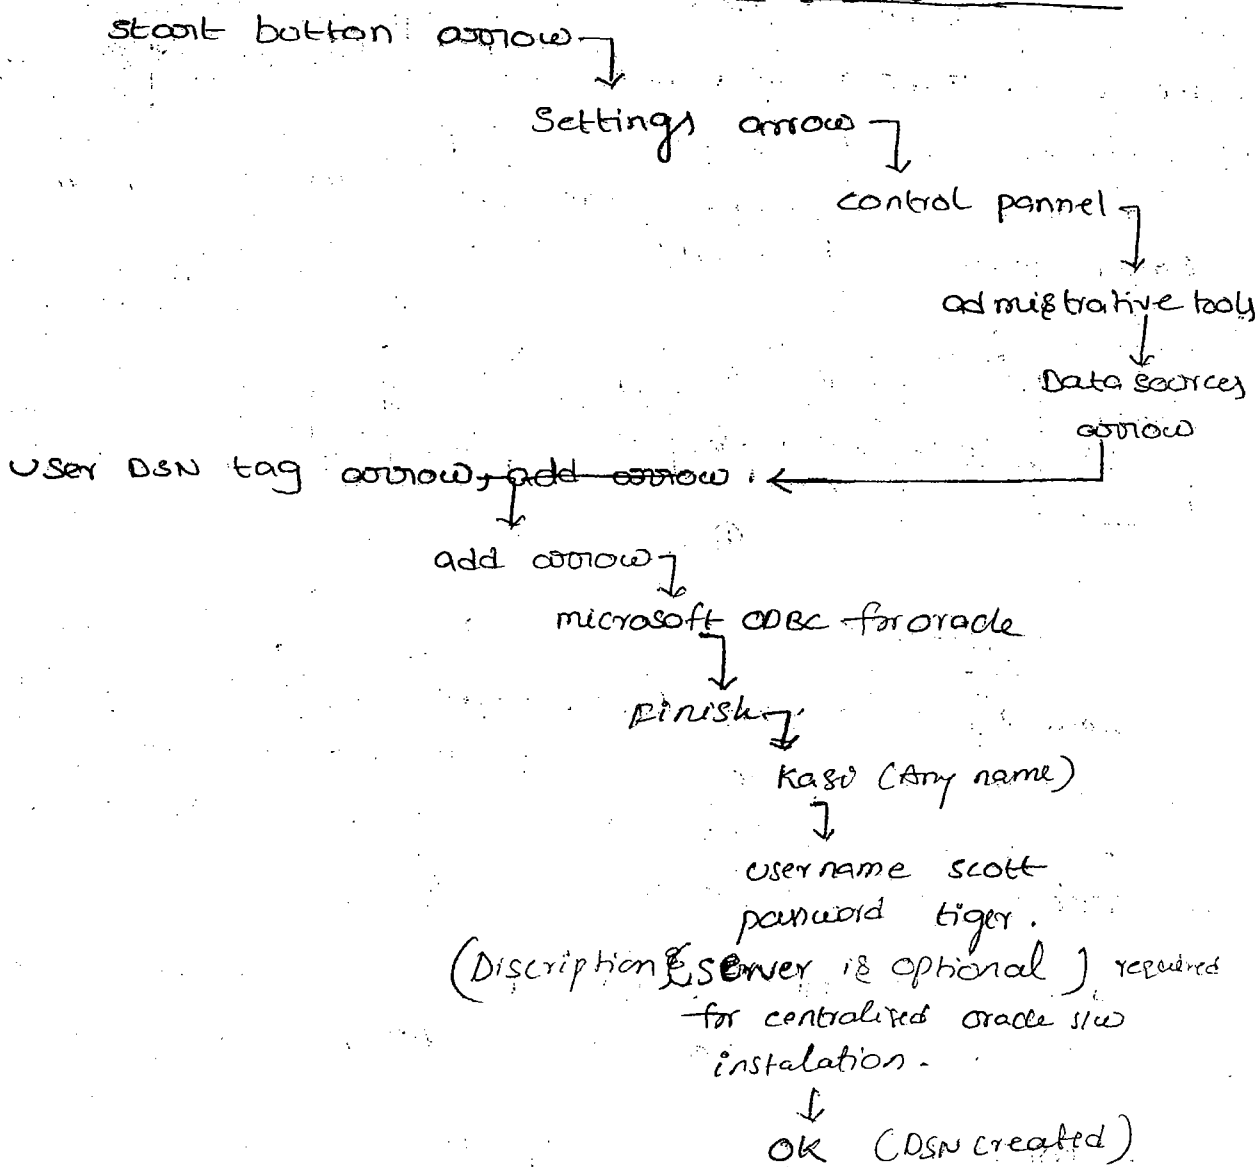 start button arrow
Settings arrow
control pannel
admistrative tools
Data sources
arrow
User DSN tag arrow, add arrow
add arrow
microsoft ODBC for oracle
Finish
kasi (Any name)
username scott
password tiger.
(Discription & server is optional) required
for centralised oracle s/w
instalation.
OK (DSN created)